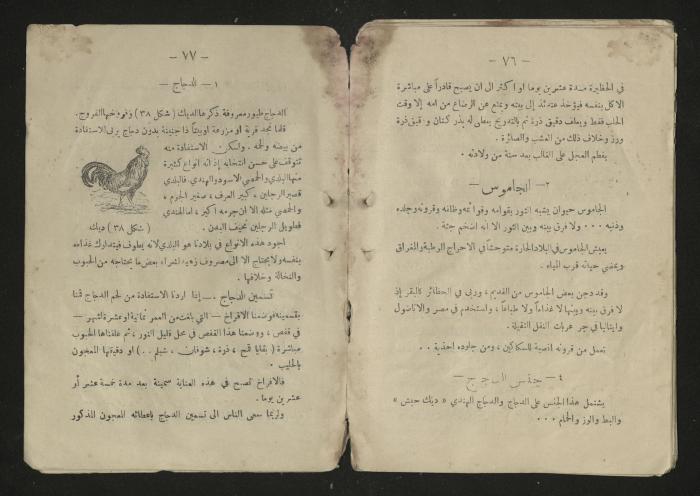 — ٧٦ —
في الحظيرة مدة عشرين يوما او اكثر الى ان يصبح قادراً على مباشرة
الاكل بنفسه فيؤخذ عندئذ إلى بيته ويمنع عن الرضاع من امه إلا وقت
الحلب فقط ويعلف دقيق ذرة ثم بالتدريج يعطى له بذر كتان ودقيق ذرة
ورز وخلاف ذلك من العشب والصائرة .
يفطم العجل على الغالب بعد ستة من ولادته .
٢ — الجاموس —
الجاموس حيوان يشبه الثور بقوامه وقوائمه وظلفه وقرونه وجلده
وذنبه ... ولا فرق بينه وبين الثور الا انه اضخم جثة .
يعيش الجاموس في البلاد الحارة متوحشاً في الاحراج الرطبة والمغراق
ويمضي حياته قرب المياه .
وقد دجن بعض الجاموس من القديم ، وربي في الحظائر كالبقر إذ
لا فرق بينه وبينها لا غذاءاً ولا طباعاً ، واستخدم في مصر والاناضول
وايتاليا في جر عربات النقل الثقيلة .
تعمل من قرونه انصبة للسكاكين ، ومن جلوده احذية ..
٤ — جنس الدجاج —
يشتمل هذا الجنس على الدجاج والدجاج الهندي « ديك حبش »
والبط والوز والحمام ...
— ٧٧ —
١ — الدجاج —
الدجاج طيور معروفة ذكرها الديك ( شكل ٣٨ ) وفرخها الفروج .
قلما نجد قرية او مزرعة اوبيتاً ذا جنينة بدون دجاج يربى لاستفادة
من بيضه ولحمه . ولسكن الاستفادة منه
تتوقف على حسن انتخابه إذ انه انواع كثيرة
منها البلدي والحمصي الاسود والهندي. فالبلدي
قصير الرجلين ، كبير العرف ، صغير الجرم ،
والحمصي مثله الا ان جرمه اكبر ، اما الهندي
فطويل الرجلين نحيف البدن .
( شكل ٣٨ ) ديك
اجود هذه الانواع في بلادنا هو البلدي لانه يطوف فيتدارك غذاءه
بنفسه ولا يحتاج الا الى مصروف زهيد لشراء بعض ما يحتاجه من الحبوب
والنخالة وخلافها .
تسمين الدجاج . — إذا اردنا الاستفادة من لحم الدجاج قمنا
بتسمينه فوضعنا الافراخ — التي بلغت من العمر ثمانية او عشرة اشهر —
في قفص ، ووضعنا هذا القفص في محل قليل النور ، ثم علفناها الحبوب
مباشرة ( بقايا قمح ، ذرة ، شوفان ، شيلم .. ) او دقيقها المعجون
بالحليب .
فالافراخ تصبح في هذه العناية سمينة بعد مدة خمسة عشر أو
عشرين يوما .
ولربما سعى الناس الى تسمين الدجاج باعطائه المعجون المذكور